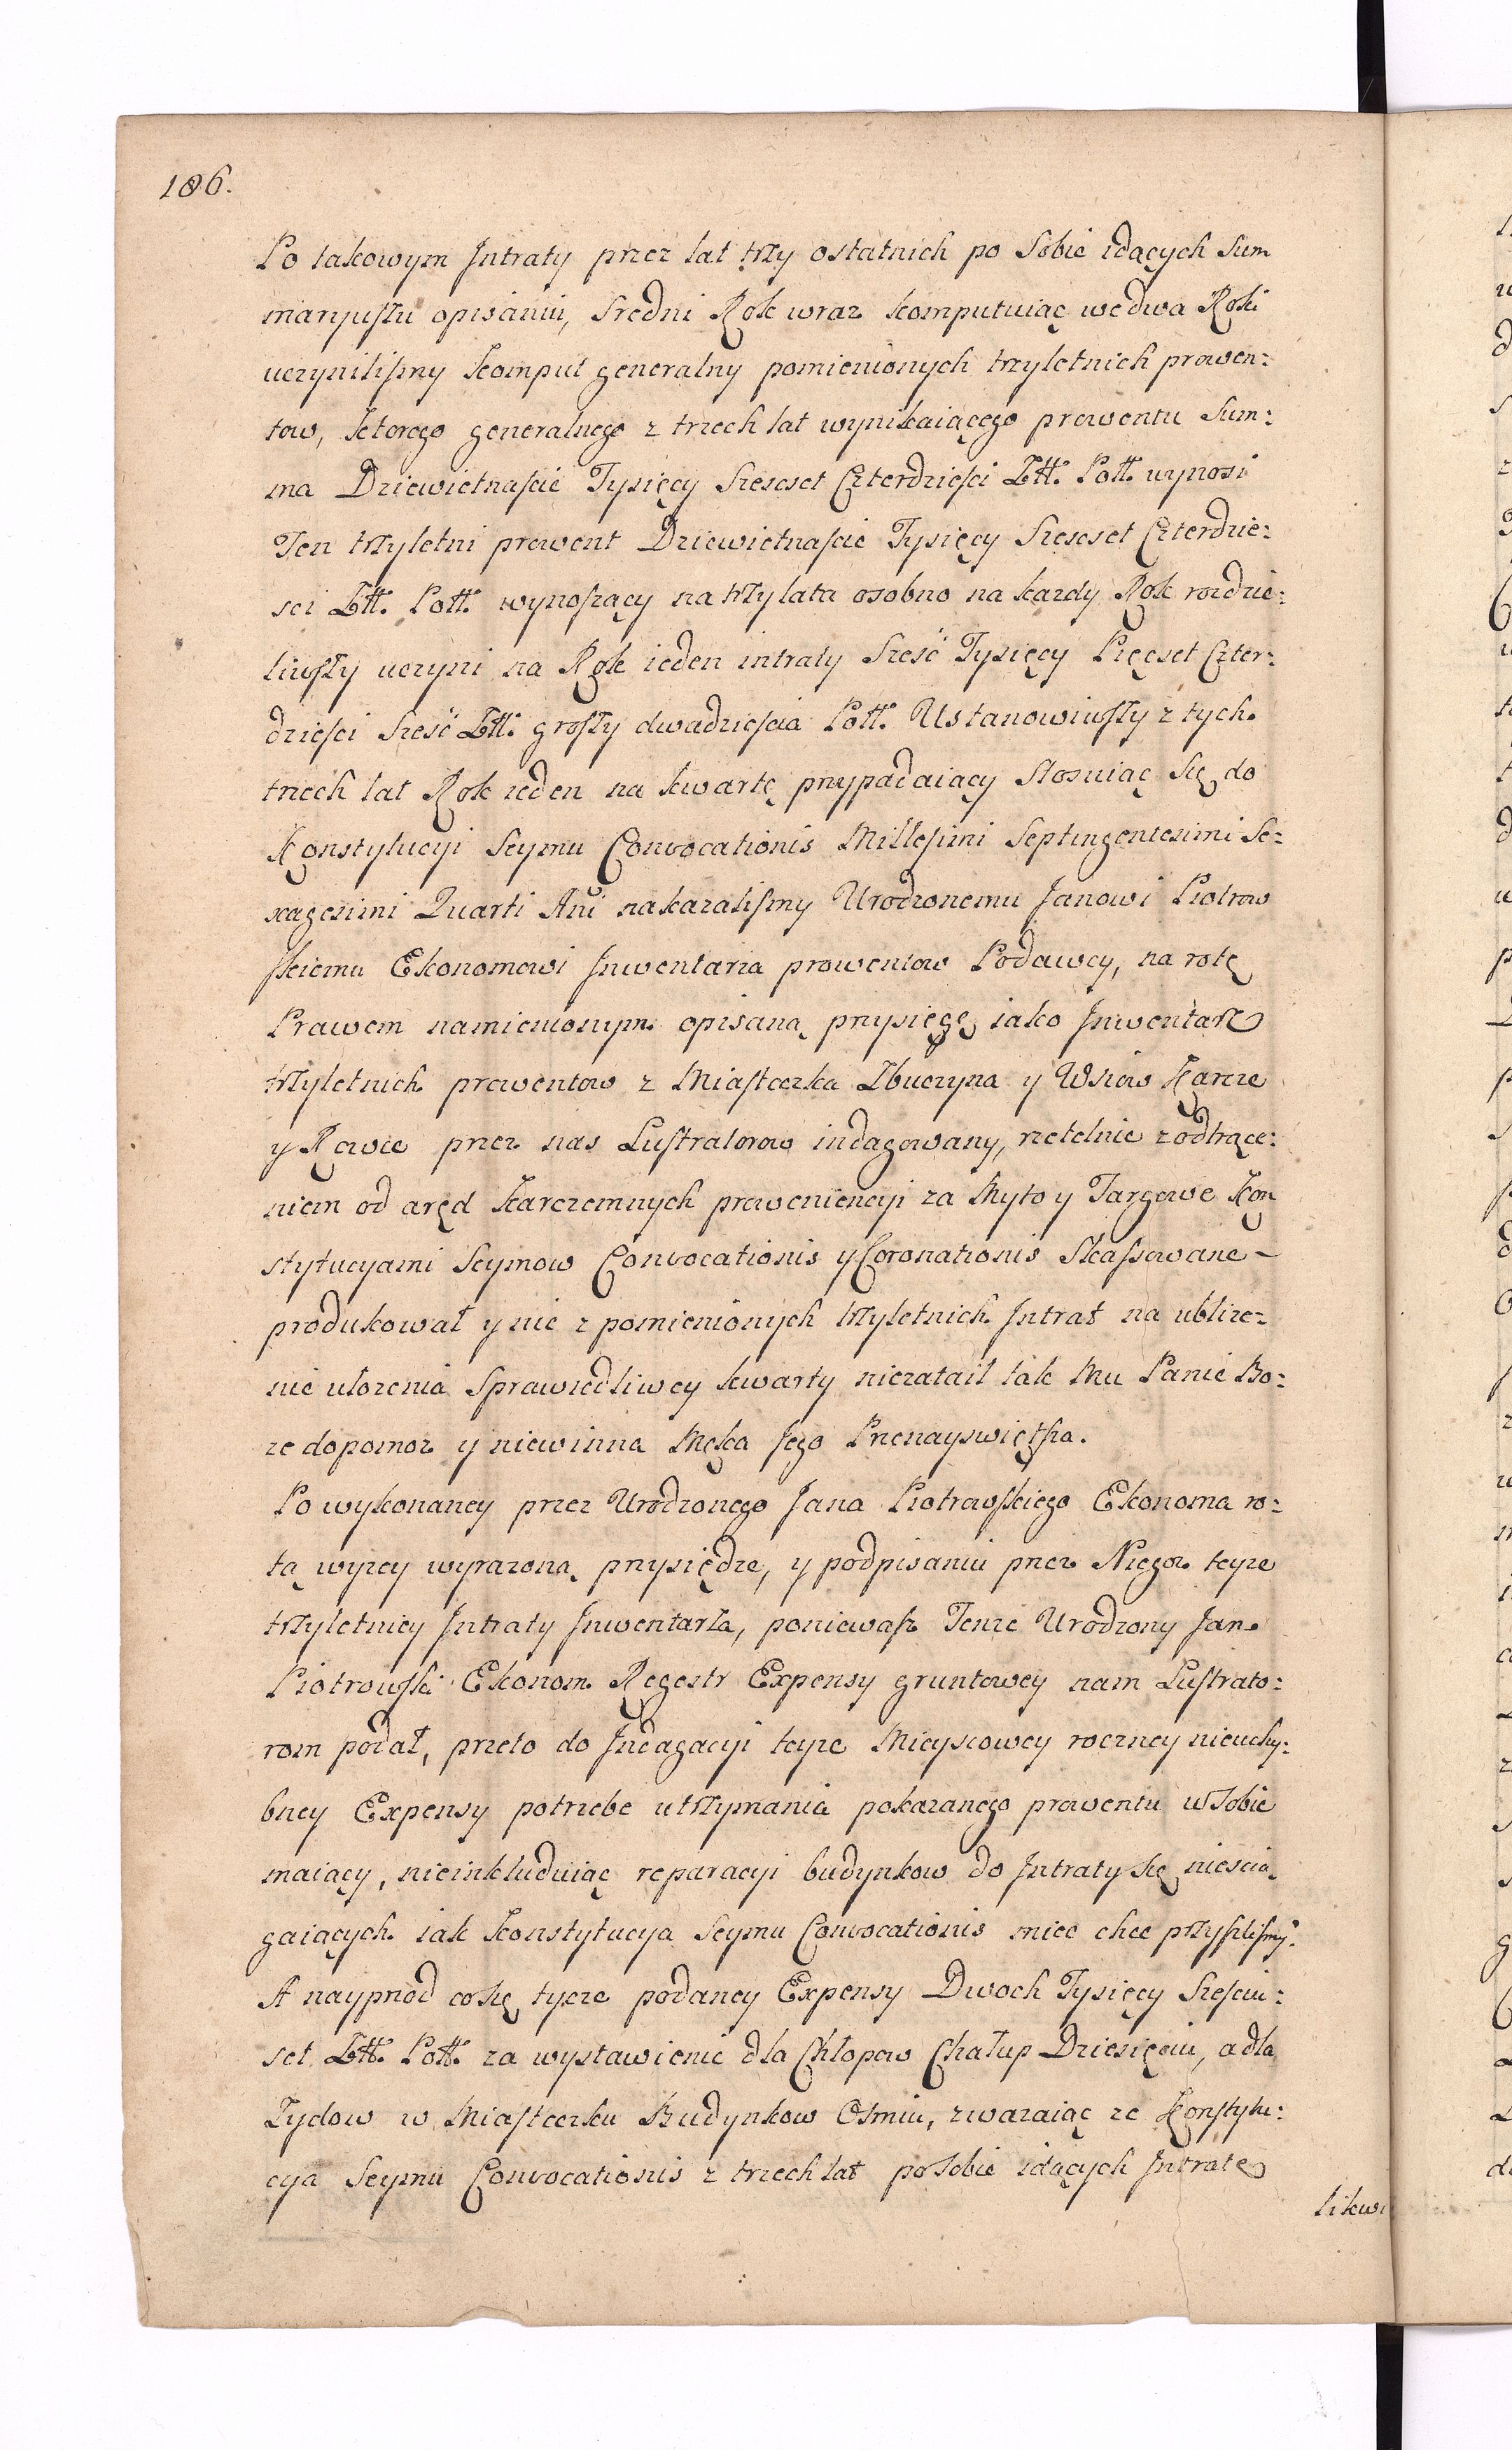 186.
Po takowym Intraty przez lat trzy ostatnich po Sobie idących Sum
maryuszu opisaniu, Sredni Rok wraz komputuiąc we dwa Roki
uczynilismy komput generalny pomienionych trzyletnich prowen:
tow, ktorego generalnego z trzech lat wynikaiącego prowentu Sum:
ma Dziewietnaście Tysięcy Szescset Czterdzieści Złł. Poll. wynosi
Ten trzyletni prowent Dziewietnaście Tysięcy Szescset Czterdzie:
sci Złł. Poll. wynoszący na trzy lata osobno na kazdy Rok rozdzie:
liwszy uczyni na Rok ieden intraty Szesć Tysięcy Pięcset Czter:
dzieści Szesć Złł. groszy dwadzieścia Poll. Ustanowiwszy z tych
trzech lat Rok ieden na kwartę przypadaiący Stosuiąc Się do
Konstytucyi Seymu Convocationis Millesimi Septingentesimi Se:
xagesimi Quarti Ani nakazalismy Urodzonemu Janowi Piotrow
skiemu Ekonomowi Inwentarza prowentow Podawcy, na rotę
Prawem namienionym opisaną przysięgę iako Inwentarz
trzyletnich prowentow z Miasteczka Zbuczyna y Wsiow Karcze
y Rowie przez nas Lustratorow indagowany, rzetelnie z odtrące:
niem od aręd karczemnych proweniencyi za Myto y Targowe Kon
stytucyami Seymow Convocationis y Coronationis Skassowane -
produkował y nic z pomienionych trzyletnich Intrat na ublize:
nie ułozenia Sprawiedliwey kwarty niezataił tak Mu Panie Bo:
ze dopomoz y niewinna Męka Jego Przenayswiętsza.
Po wykonaney przez Urodzonego Jana Piotrowskiego Ekonoma ro:
tą wyzey wyrazoną przysiędze, y podpisaniu przez Niego teyze
trzyletniey Intraty Inwentarza, poniewasz Tenze Urodzony Jan
Piotrowski Ekonom Regestr Expensy gruntowey nam Lustrato:
rom podał, przeto do Indagacyi teyze Mieyscowey roczney nieuchy:
bney Expensy potrzebe utrzymania pokazanego prowentu w Sobie
maiący, nieinkluduiąc reparacyi budynkow do Intraty Się niescią
gaiących iak Konstytucya Seymu Convocationis miec chce przyszlismy.
A nayprzod co Się tycze podaney Expensy Dwoch Tysięcy Szesciu:
set Złł. Poll. za wystawienie dla Chłopow Chałup Dziesięciu, a dla
Zydow w Miasteczku Budynkow Osmiu, zwazaiąc ze Konstytu:
cya Seymu Convocationis z trzech lat po Sobie idących Intratę
likwi